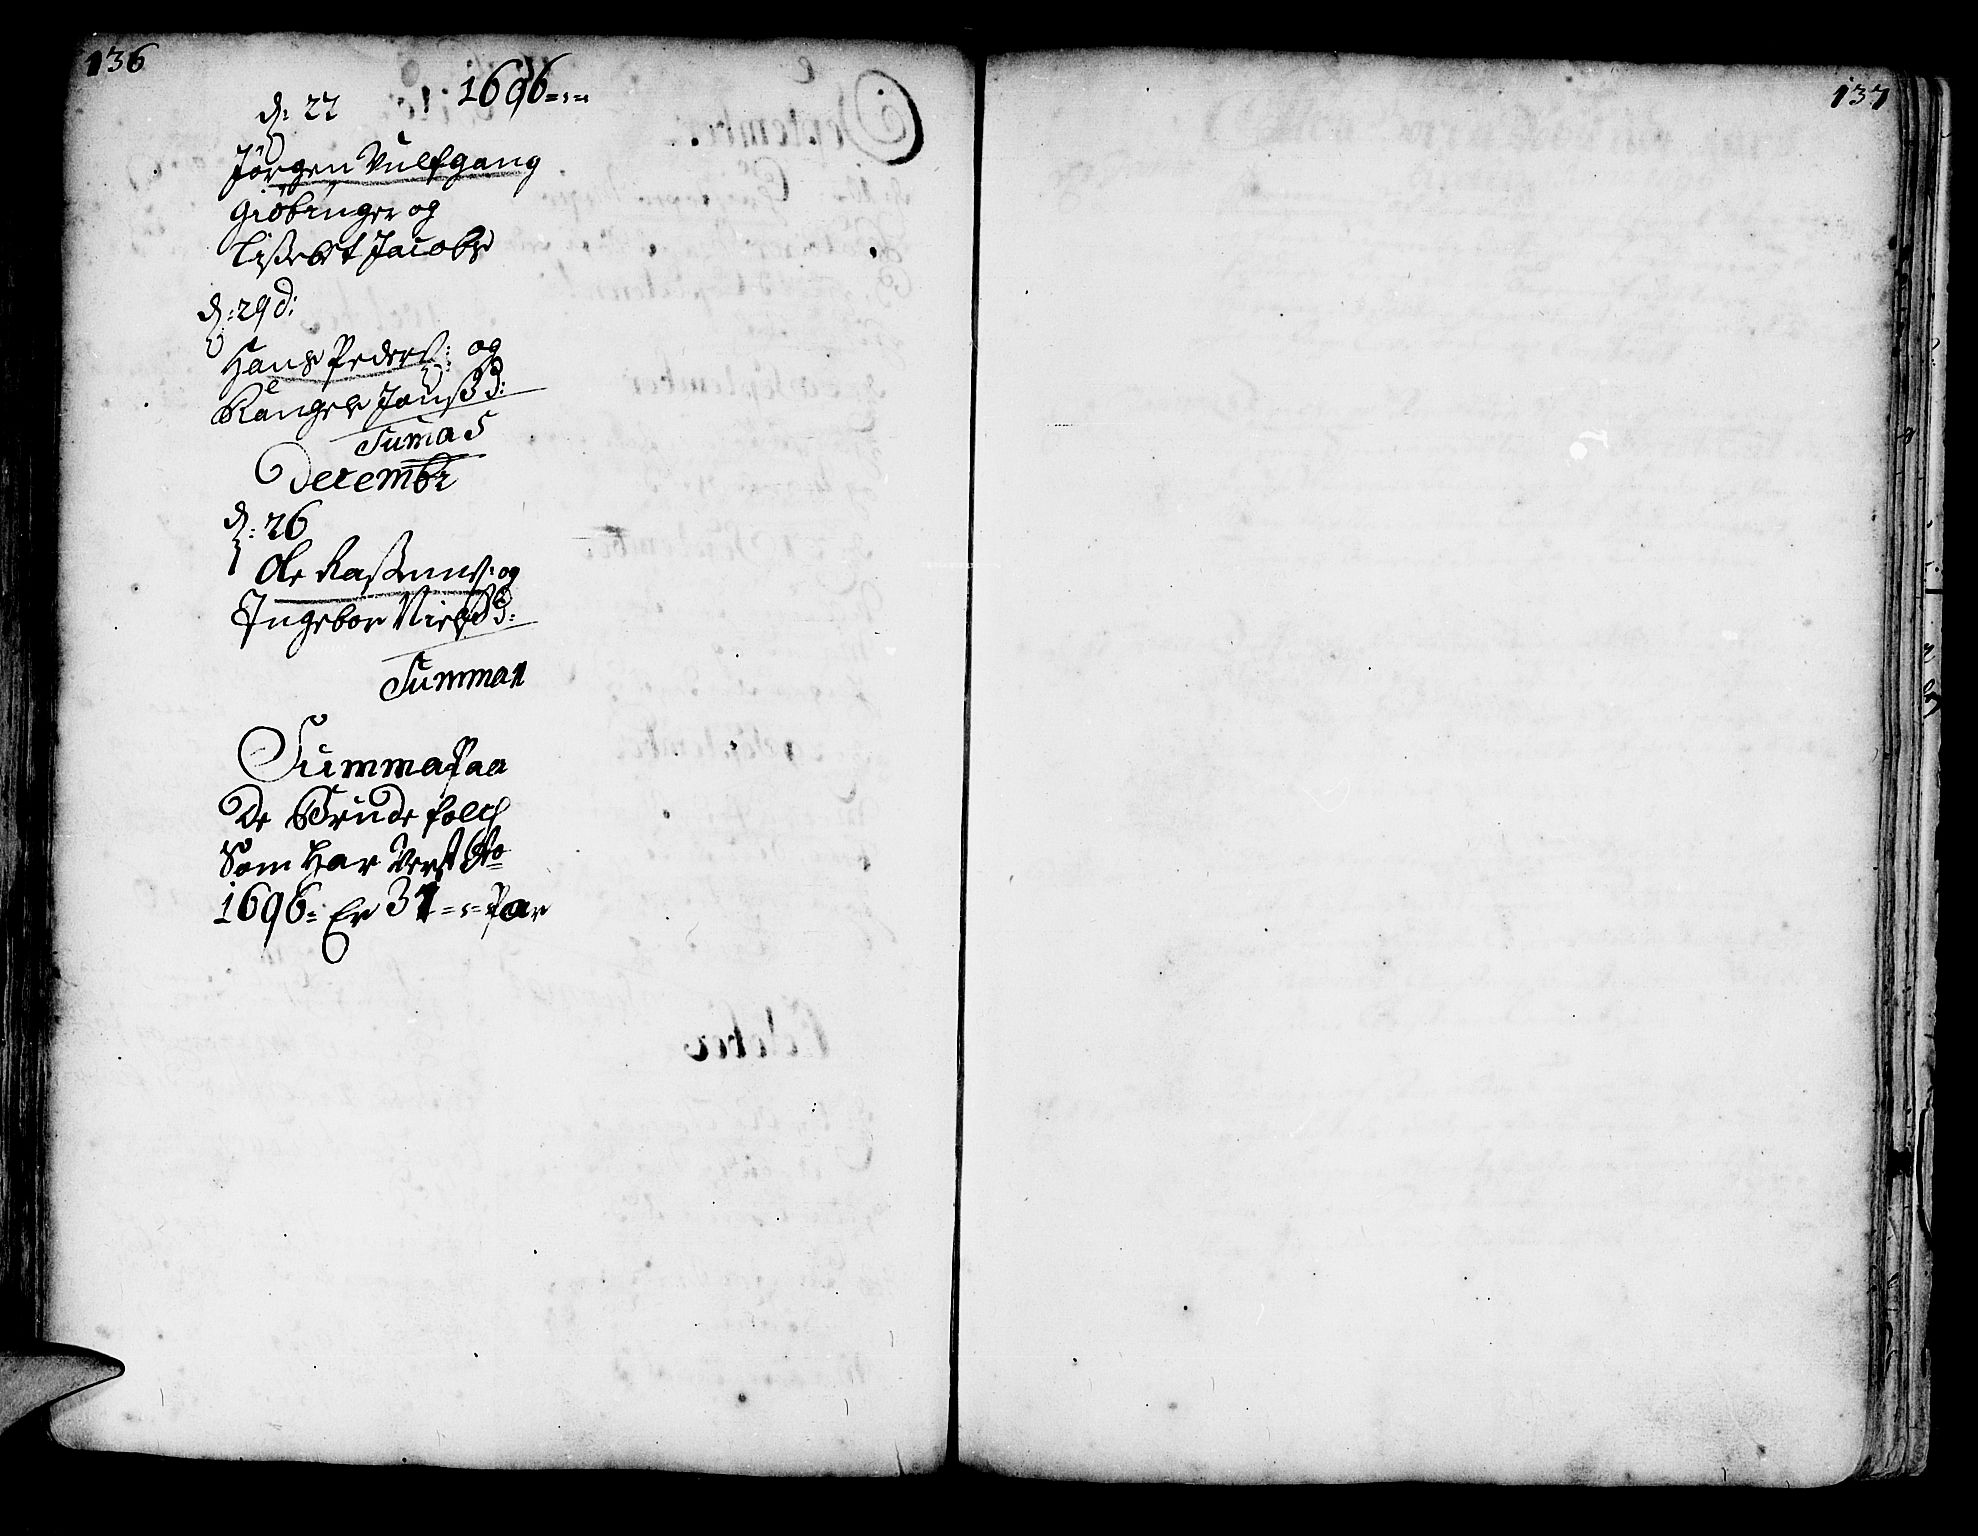 136
1696=:=
d: 22
Jørgen Vulfgang
Giöbinger og
Lissebet Jacobs
d: 29 d:
Hans Peders: og
Rangele Jons D:
Suma 5
Decembr
d: 26
Ole Rassmus: og
Ingebor Niels D:
Summa 1
Summa Paa
De Brude folch
Som Har Verst Ao
1696= Er 31=:= Par
137